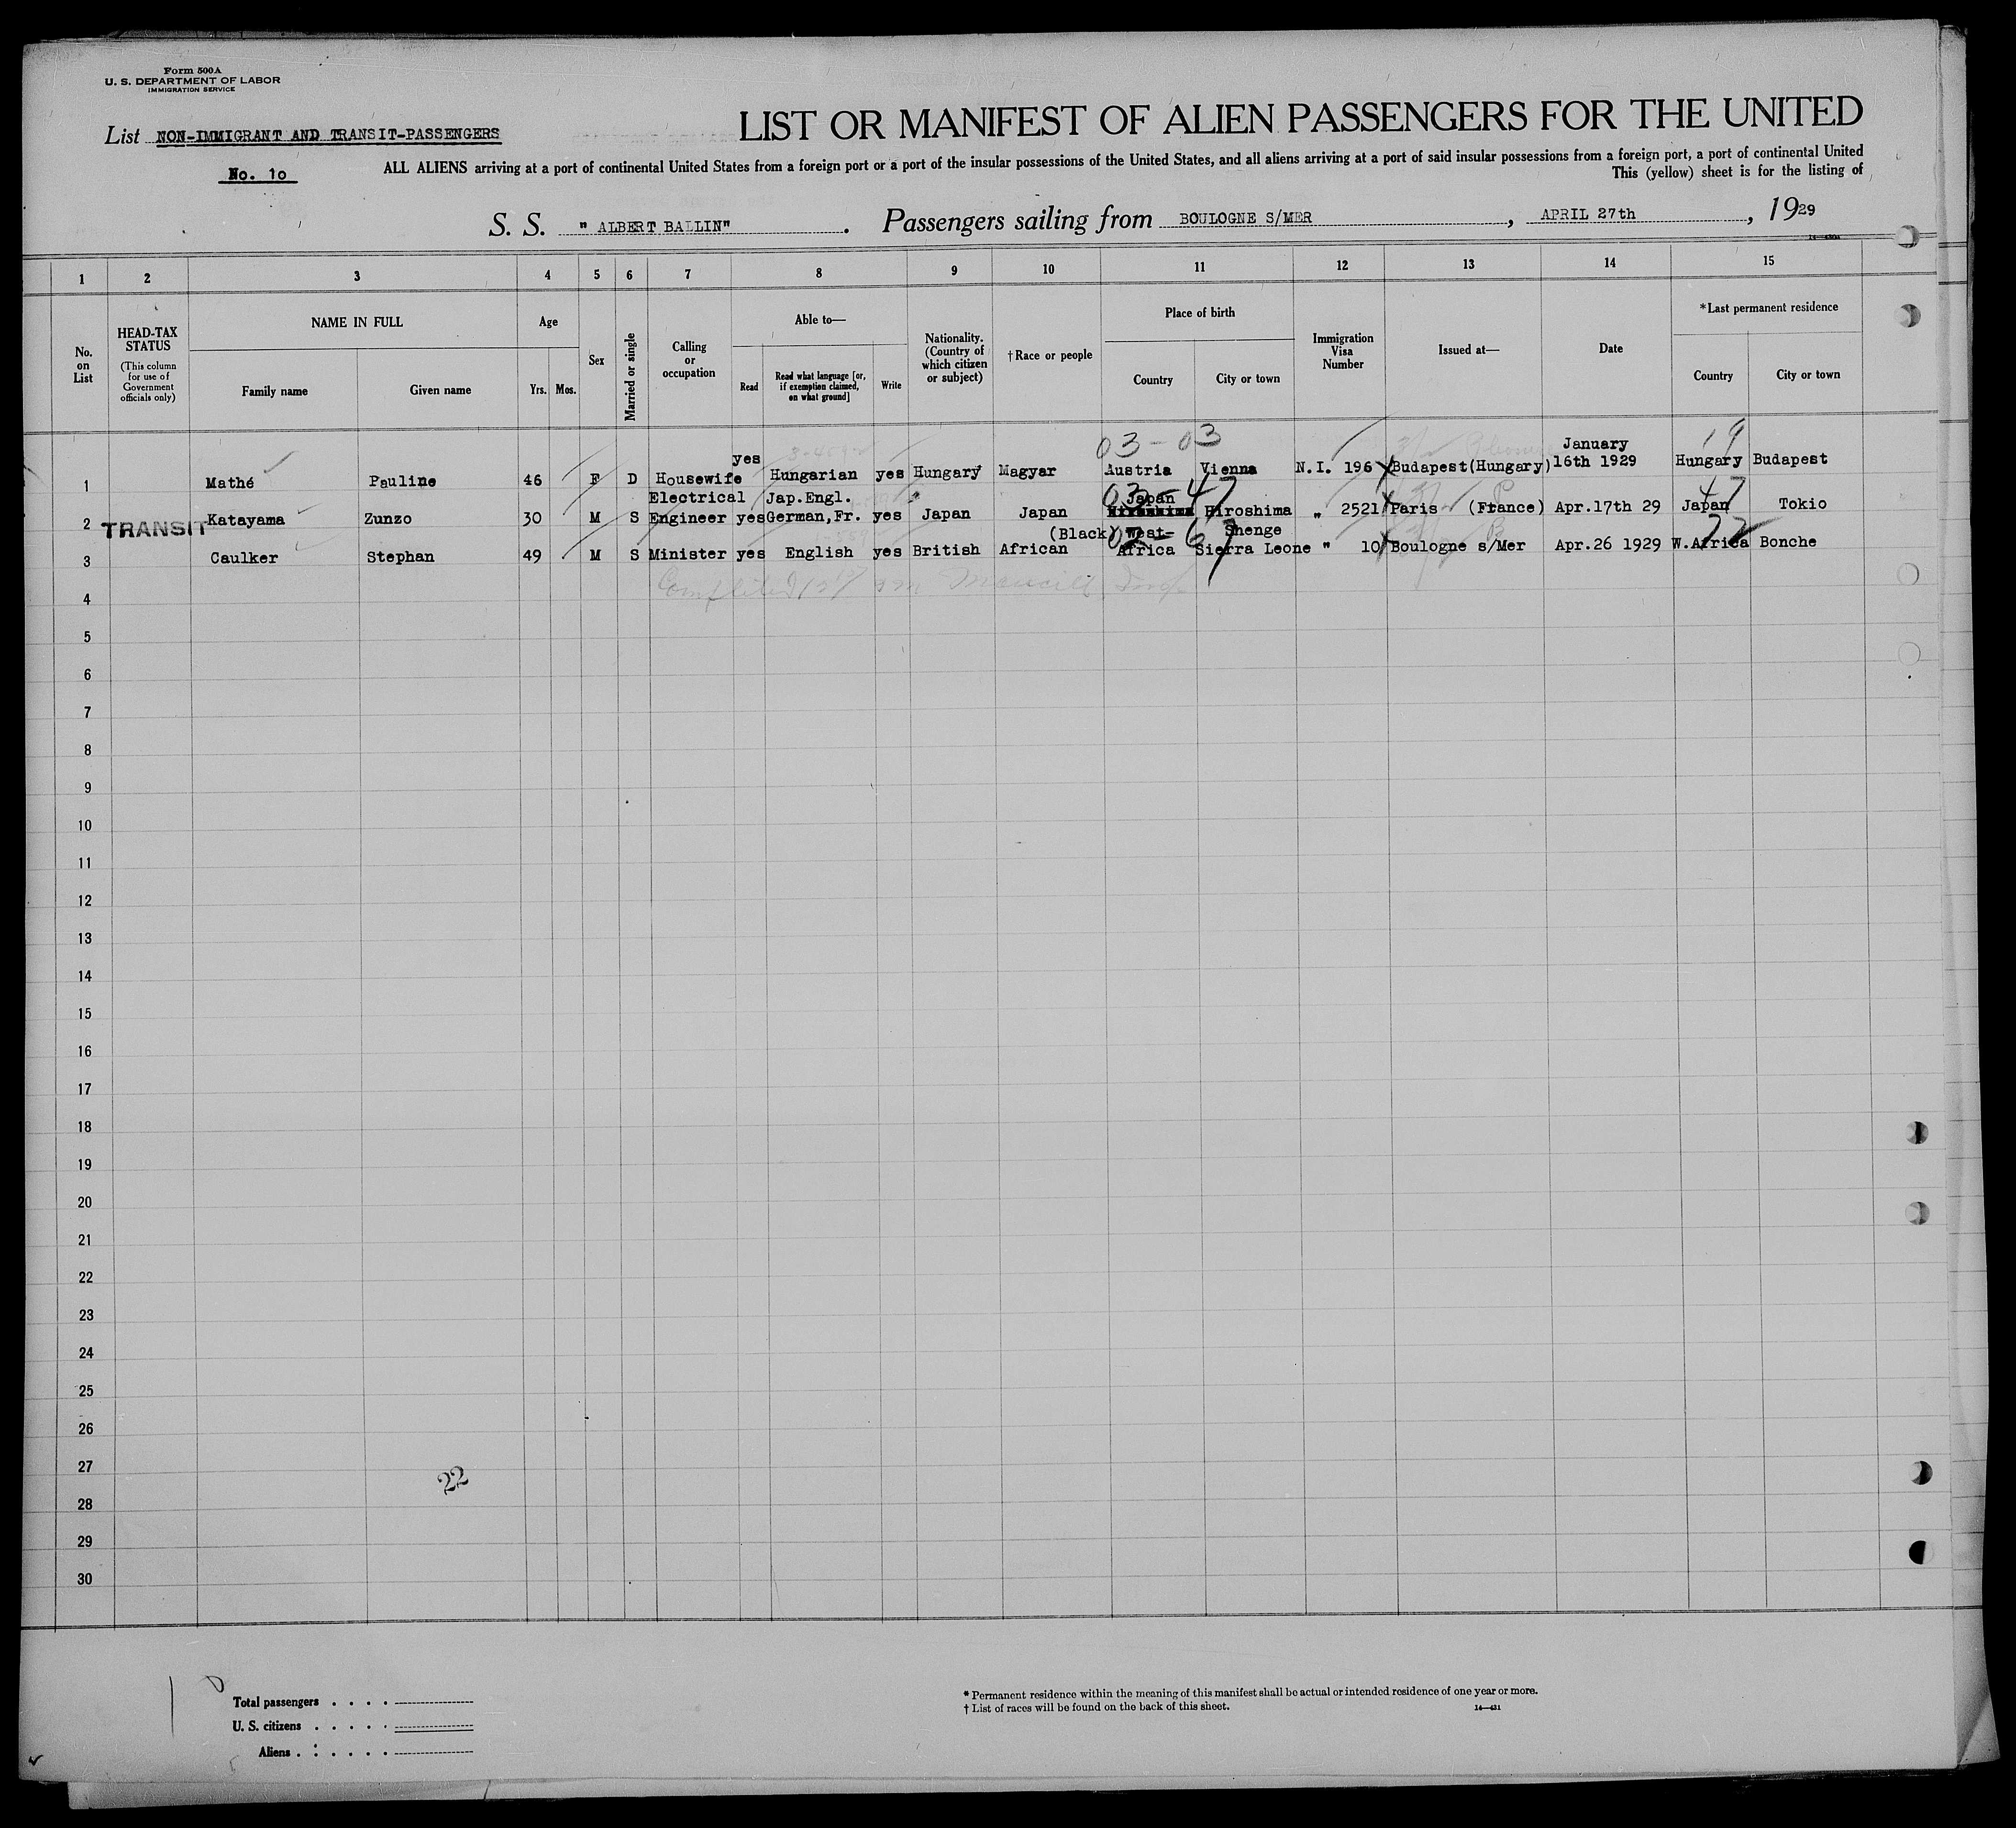 Form 500A
U. S. DEPARTMENT OF LABOR
IMMIGRATION SERVICE
List NON-IMMIGRANT AND TRANSIT-PASSENGERS
No. 10
LIST OR MANIFEST OF ALIEN PASSENGERS FOR THE UNITED
ALL ALIENS arriving at a port of continental United States from a foreign port or a port of the insular possessions of the United States, and all aliens arriving at a port of said insular possessions from a foreign port, a port of continental United
This (yellow) sheet is for the listing of
S. S. " ALBERT BALLIN" . Passengers sailing from BOULOGNE S/MER , APRIL 27th , 1929
1 2 3 4 5 6 7 8 9 10 11 12 13 14 15
No. on List
HEAD-TAX STATUS (This column for use of Government officials only)
NAME IN FULL
Family name Given name
Age
Yrs. Mos.
Sex
Married or single
Calling or occupation
Able to—
Read Read what language [or, if exemption claimed, on what ground] Write
Nationality. (Country of which citizen or subject)
†Race or people
Place of birth
Country City or town
Immigration Visa Number
Issued at—
Date
*Last permanent residence
Country City or town
03-03 19
1 Mathé Pauline 46 F D Housewife yes Hungarian yes Hungary Magyar Austria Vienna N.I. 196 Budapest(Hungary) January 16th 1929 Hungary Budapest
03-47 47
2 TRANSIT Katayama Zunzo 30 M S Electrical Engineer yes Jap.Engl. German,Fr. yes Japan Japan Japan Hiroshima Hiroshima " 2521 Paris (France) Apr.17th 29 Japan Tokio
72
3 Caulker Stephan 49 M S Minister yes English yes British (Black) African West-Africa Shenge Sierra Leone " 10 Boulogne s/Mer Apr.26 1929 W.Africa Bonche
4
5
6
7
8
9
10
11
12
13
14
15
16
17
18
19
20
21
22
23
24
25
26
27
28
29
30
22
Total passengers . . . .
U. S. citizens . . . . .
Aliens . . . . . .
* Permanent residence within the meaning of this manifest shall be actual or intended residence of one year or more.
† List of races will be found on the back of this sheet.
14—431